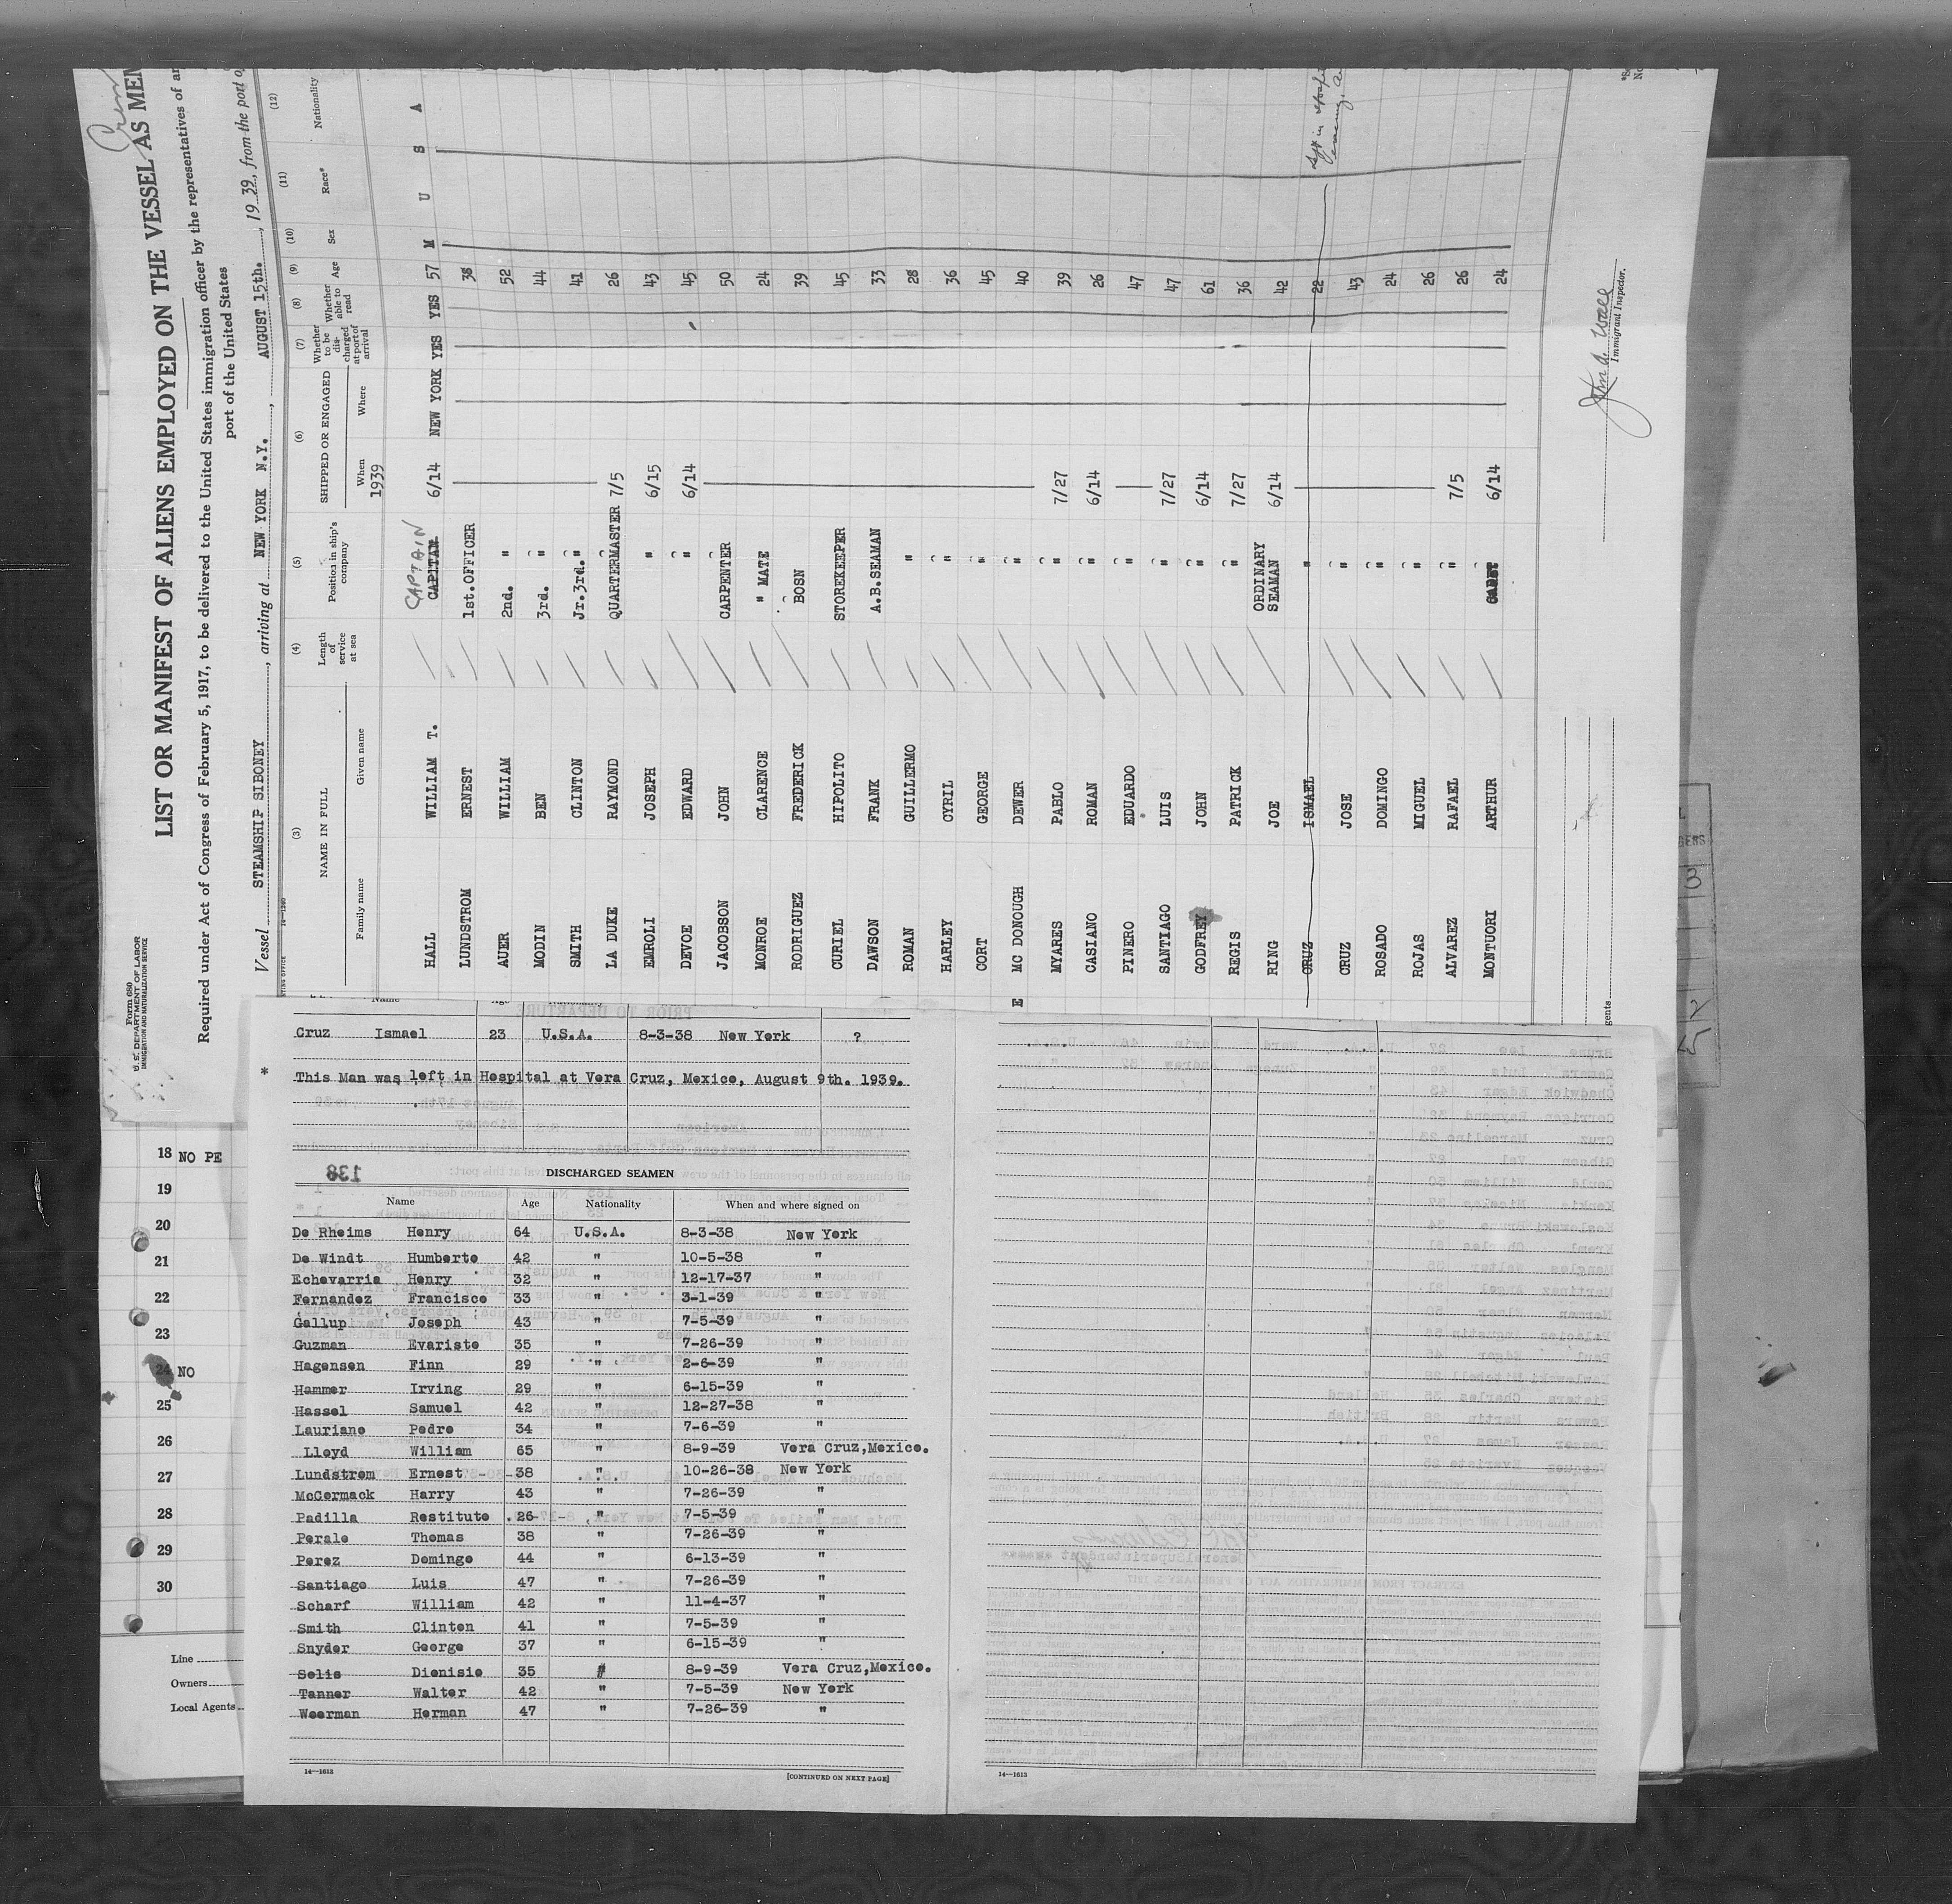 Form 680
U. S. DEPARTMENT OF LABOR
IMMIGRATION AND NATURALIZATION SERVICE
Crew
LIST OR MANIFEST OF ALIENS EMPLOYED ON THE VESSEL AS MEM
Required under Act of Congress of February 5, 1917, to be delivered to the United States immigration officer by the representatives of an
port of the United States
Vessel STEAMSHIP SIBONEY, arriving at NEW YORK N.Y., AUGUST 15th., 1939, from the port of
14—1240
(3) (4) (5) (6) (7) (8) (9) (10) (11) (12)
NAME IN FULL Length of service at sea Position in ship's company SHIPPED OR ENGAGED Whether to be discharged at port of arrival Whether able to read Age Sex Race* Nationality
Family name Given name When Where
1939
HALL WILLIAM T. CAPTAIN 6/14 NEW YORK YES YES 57 M U S A
LUNDSTROM ERNEST 1st.OFFICER 38
AUER WILLIAM 2nd. " 52
MODIN BEN 3rd. " 44
SMITH CLINTON Jr.3rd. " 41
LA DUKE RAYMOND QUARTERMASTER 7/5 26
EMROLI JOSEPH " 6/15 43
DEVOE EDWARD " 6/14 45
JACOBSON JOHN CARPENTER 50
MONROE CLARENCE " MATE 24
RODRIGUEZ FREDERICK BOSN 39
CURIEL HIPOLITO STOREKEEPER 45
DAWSON FRANK A.B.SEAMAN 33
ROMAN GUILLERMO " 28
HARLEY CYRIL " 36
CORT GEORGE " 45
E MC DONOUGH DEWER " 40
MYARES PABLO " 7/27 39
CASIANO ROMAN " 6/14 26
PINERO EDUARDO " 47
SANTIAGO LUIS " 7/27 47
GODFREY JOHN " 6/14 61
REGIS PATRICK " 7/27 36
RING JOE ORDINARY SEAMAN 6/14 42
CRUZ ISMAEL " 22
CRUZ JOSE " 43
ROSADO DOMINGO " 24
ROJAS MIGUEL " 26
ALVAREZ RAFAEL " 7/5 26
MONTUORI ARTHUR CADET 6/14 24
Immigrant Inspector.
Cruz Ismael 23 U.S.A. 8-3-38 New York ?
* This Man was left in Hospital at Vera Cruz, Mexico, August 9th. 1939.
DISCHARGED SEAMEN
Name Age Nationality When and where signed on
De Rheims Henry 64 U.S.A. 8-3-38 New York
De Windt Humberto 42 " 10-5-38 "
Echevarria Henry 32 " 12-17-37 "
Fernandez Francisco 33 " 3-1-39 "
Gallup Joseph 43 " 7-5-39 "
Guzman Evaristo 35 " 7-26-39 "
Hagensen Finn 29 " 2-6-39 "
Hammer Irving 29 " 6-15-39 "
Hassel Samuel 42 " 12-27-38 "
Lauriano Pedro 34 " 7-6-39 "
Lloyd William 65 " 8-9-39 Vera Cruz,Mexico.
Lundstrom Ernest 38 " 10-26-38 New York
McCormack Harry 43 " 7-26-39 "
Padilla Restituto 26 " 7-5-39 "
Perale Thomas 38 " 7-26-39 "
Perez Domingo 44 " 6-13-39 "
Santiago Luis 47 " 7-26-39 "
Scharf William 42 " 11-4-37 "
Smith Clinton 41 " 7-5-39 "
Snyder George 37 " 6-15-39 "
Solis Dionisio 35 " 8-9-39 Vera Cruz,Mexico.
Tanner Walter 42 " 7-5-39 New York
Weerman Herman 47 " 7-26-39 "
14—1613
[CONTINUED ON NEXT PAGE]
14—1613
18 NO PE
19
20
21
22
23
24 NO
25
26
27
28
29
30
Line
Owners
Local Agents